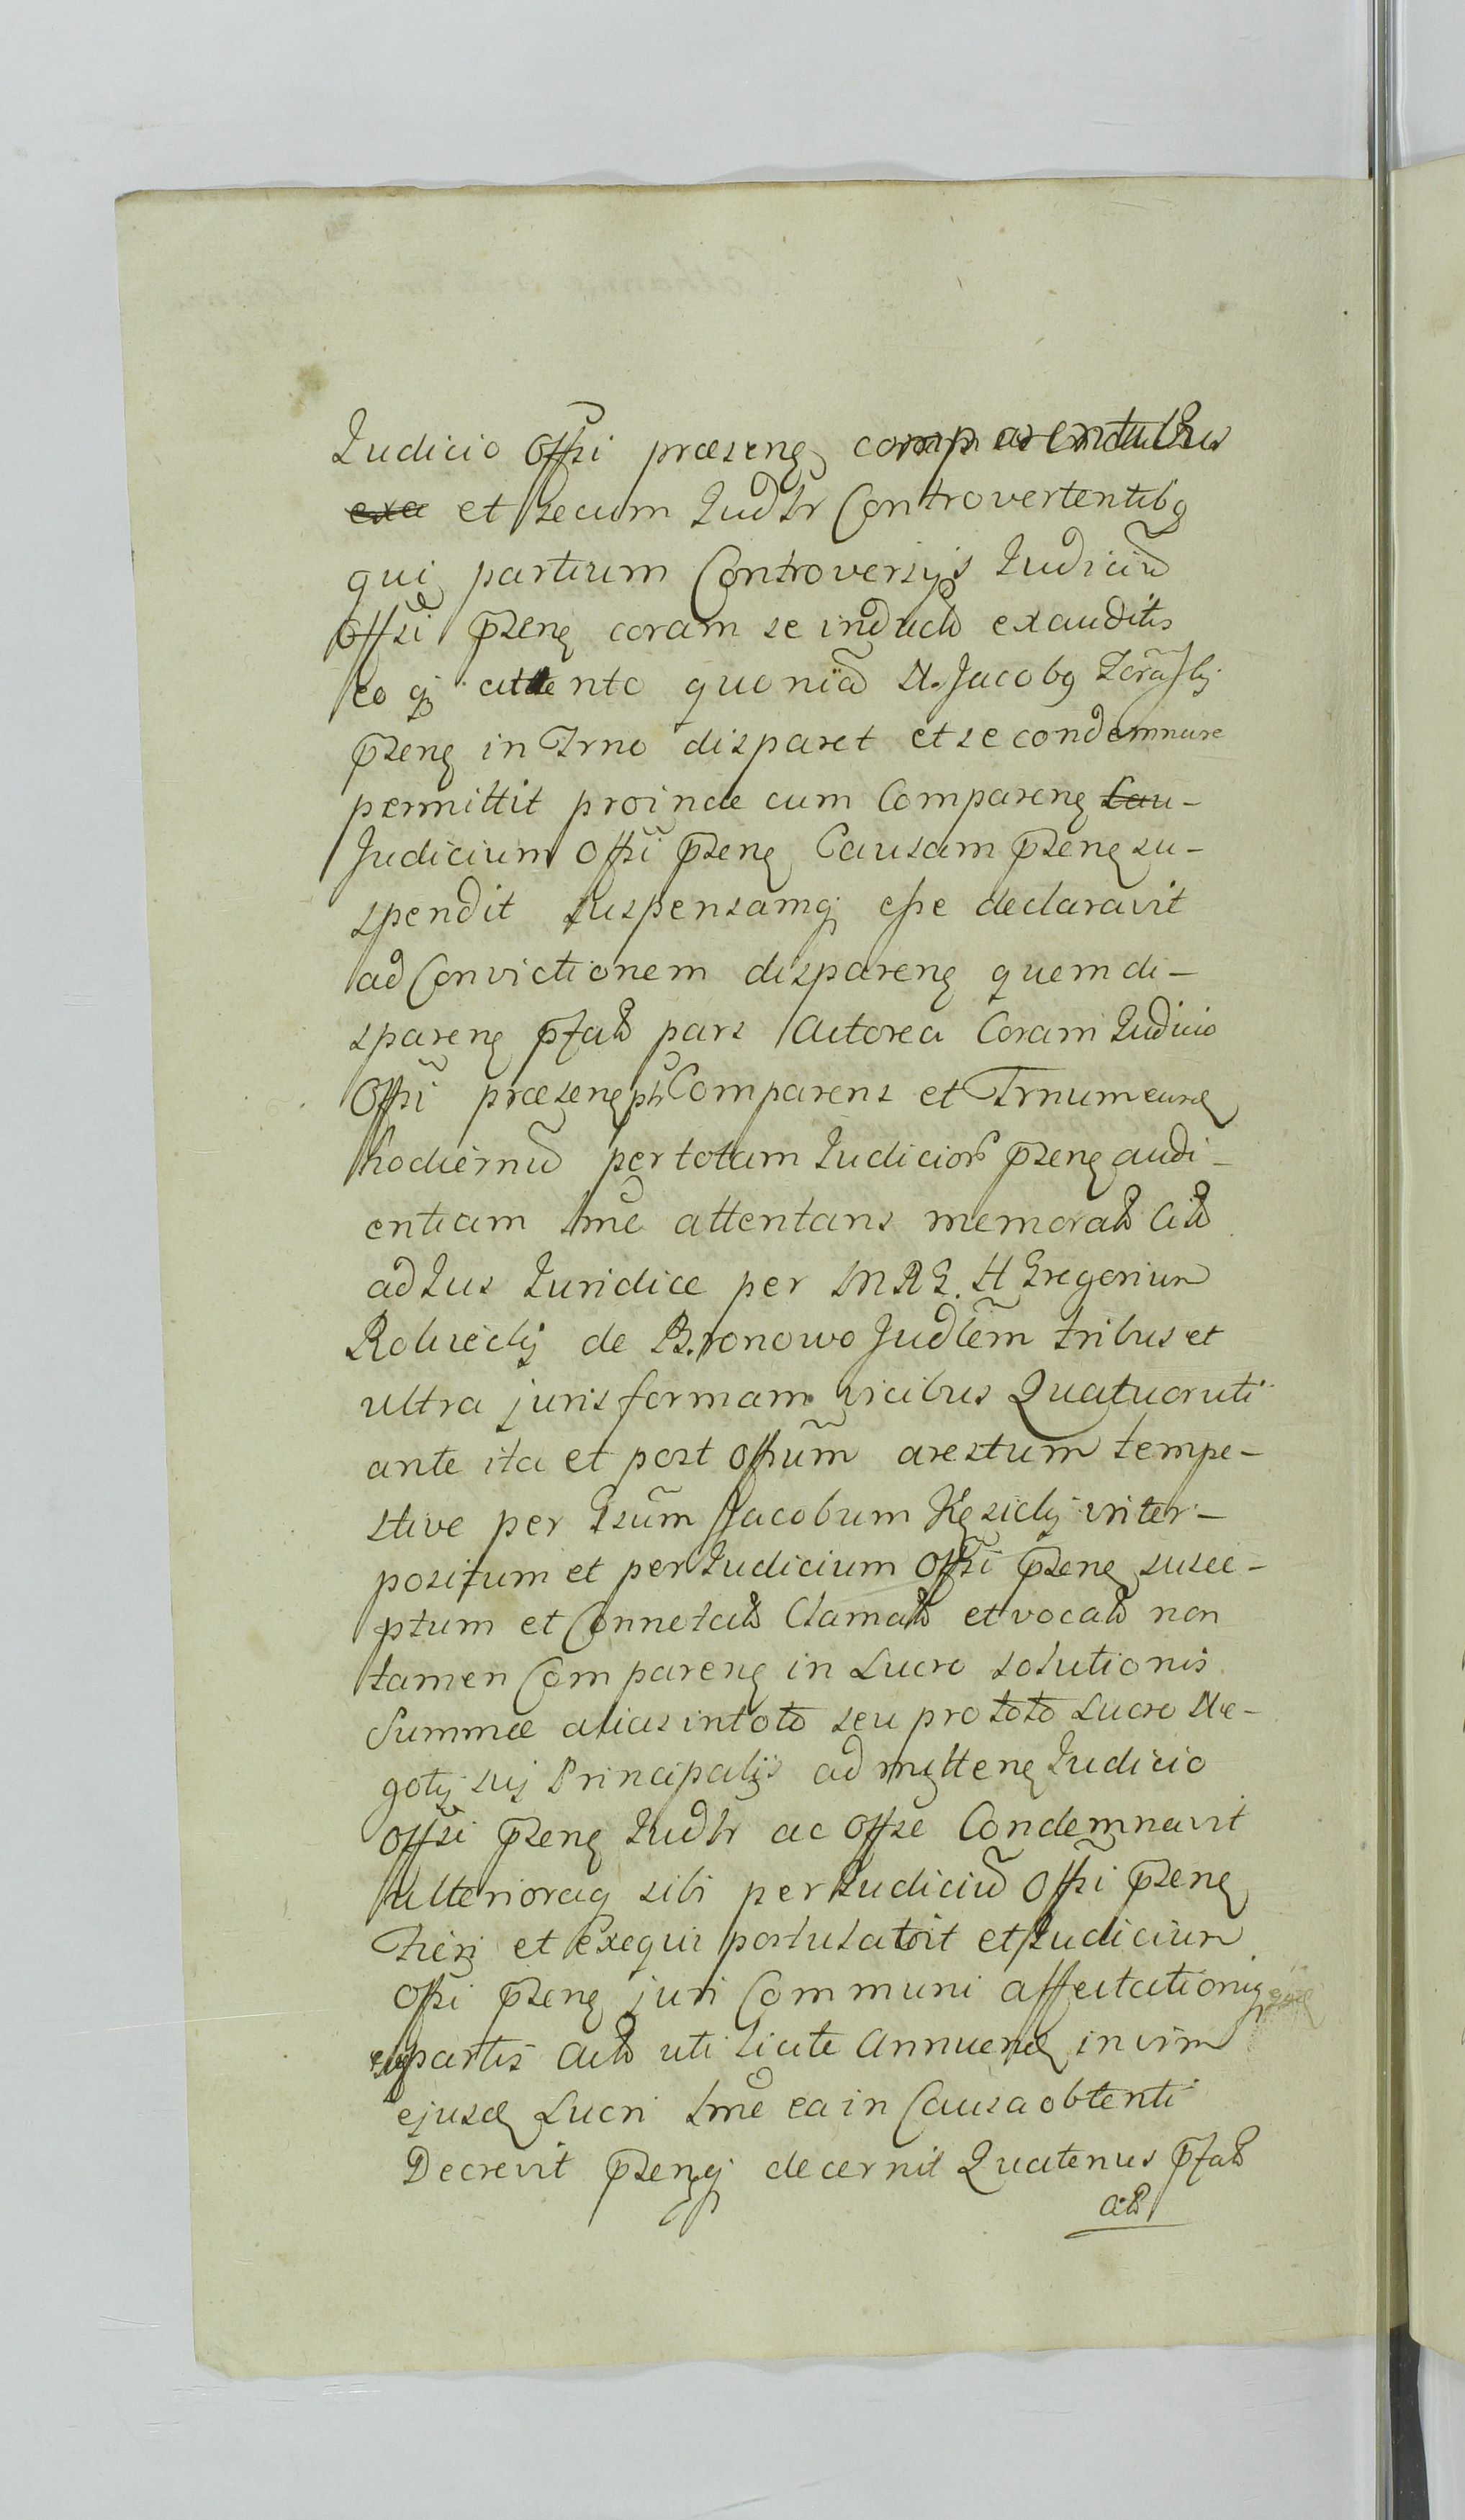 Judicio Offi præseng comparentibus
exa et secum Judlr Controvertentibq
qui partium Controversijs Judiciũ
Offsi pseng coram se inductis exauditis
eo qj attento quoniã N. Jacobq
pseng in Trno disparet et se condemnare
permittit proinde cum Compareng Cau-
Judicium Offi pseng Causam pseng su-
spendit suspensamqj esse declaravit
ad Convictionem dispareng quem di-
spareng pfatũ pars Actorea Coram Judicio
Offi præseng ptr Comparens et Trnum eund
hodiernũ per totam Judicior pseng audi-
entiam lme attentans memoratũ Citũ
ad Jus Juridice per MRG. H Gregorium
de Bronowo Judlem tribus et
ultra juris formam vicibus Quatuor uti
ante ita et post Offium arestum tempe-
stive per Gsum Jacobum inter-
positum et per Judicium Offi pseng susce-
ptum et Connotatũ Clamatũ et vocatũ non
tamen Compareng in Lucro solutionis
Summæ alias in toto seu pro toto Lucro Ne-
gotij suj Principalis admitteng Judicio
Offsi pseng Judlr ac Offse Condemnavit
ulterioraq sibi per Judiciũ Offi pseng
Fieri et Exequi postulavit et Judicium
Offi pseng juri Communi affectationiq
partis Actũ uti licite Annuend in vim
ejusd Lucri lme ea in Causa obtenti
Decrevit psengj decernit Quatenus pfatũ
citũ